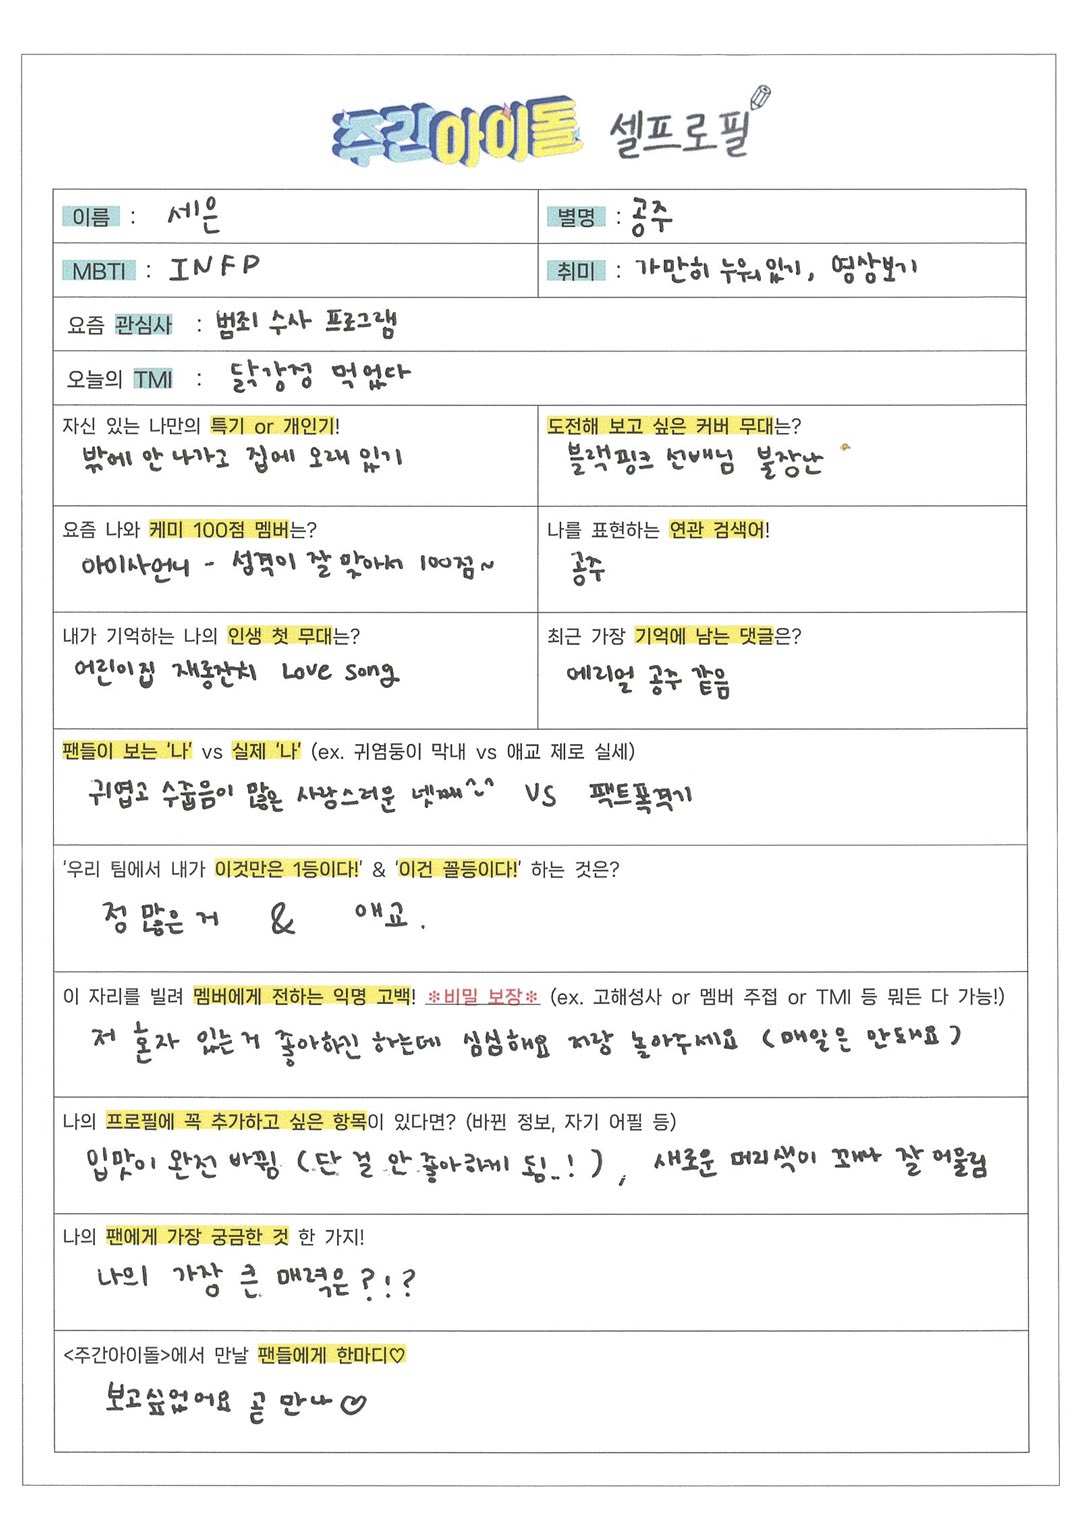 주간아이돌 셀프로필
이름 : 세은
별명 : 공주
MBTI : INFP
취미 : 가만히 누워있기, 영상보기
요즘 관심사 : 범죄 수사 프로그램
오늘의 TMI : 닭강정 먹었다
자신 있는 나만의 특기 or 개인기!
밖에 안 나가고 집에 오래 있기
도전해 보고 싶은 커버 무대는?
블랙핑크 선배님 불장난
요즘 나와 케미 100점 멤버는?
아이사언니 - 성격이 잘 맞아서 100점~
나를 표현하는 연관 검색어!
공주
내가 기억하는 나의 인생 첫 무대는?
어린이집 재롱잔치 Love song
최근 가장 기억에 남는 댓글은?
에리얼 공주 같음
팬들이 보는 '나' vs 실제 '나' (ex. 귀염둥이 막내 vs 애교 제로 실세)
귀엽고 수줍음이 많은 사랑스러운 넷째^^ VS 팩트폭격기
'우리 팀에서 내가 이것만은 1등이다!' & '이건 꼴등이다!' 하는 것은?
정 많은 거 & 애교.
이 자리를 빌려 멤버에게 전하는 익명 고백! *비밀 보장* (ex. 고해성사 or 멤버 주접 or TMI 등 뭐든 다 가능!)
저 혼자 있는거 좋아하긴 하는데 심심해요 저랑 놀아주세요 (매일은 안돼요)
나의 프로필에 꼭 추가하고 싶은 항목이 있다면? (바뀐 정보, 자기 어필 등)
입맛이 완전 바뀜 (단 걸 안 좋아하게 됨..!), 새로운 머리색이 꽤나 잘 어울림
나의 팬에게 가장 궁금한 것 한 가지!
나의 가장 큰 매력은?!?
<주간아이돌>에서 만날 팬들에게 한마디♡
보고싶었어요 곧 만나♡